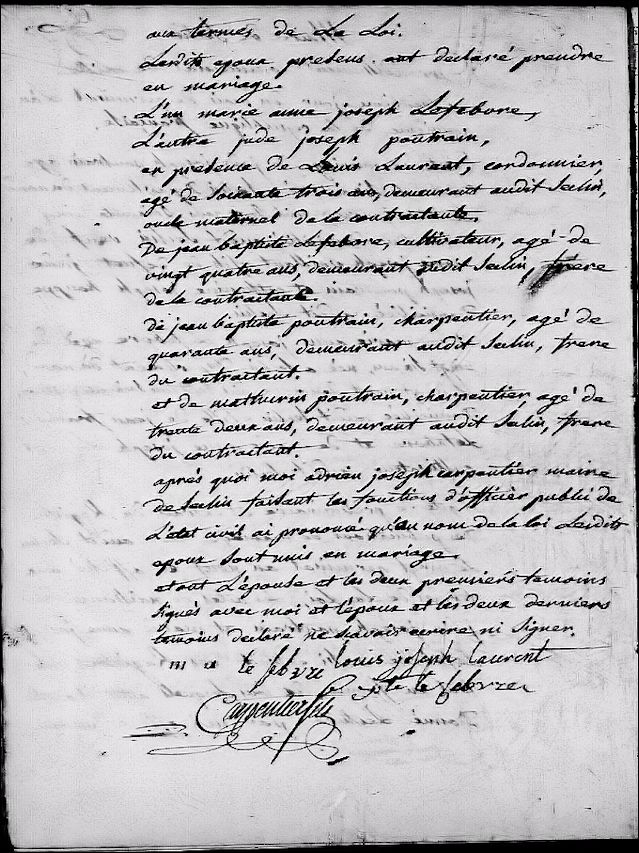 aux termes de La Loi.
Lesdits epoux presens ont declaré prendre
en mariage.
L'un marie anne joseph Lefebvre,
L'autre jude joseph poutrain,
en presence de Louis Laurent, cordonnier,
agé de soixante trois ans, demeurant audit Seclin,
oncle maternel de la contractante.
De jean baptiste Lefebvre, cultivateur, agé de
vingt quatre ans, demeurant audit Seclin, frere
de la contractante.
de jean baptiste poutrain, charpentier, agé de
quarante ans, demeurant audit Seclin, frere
du contractant.
et de mathurin poutrain, charpentier agé de
trente deux ans, demeurant audit Seclin, frere
du contractant.
après quoi moi adrien joseph carpentier maire
de Seclin faisant les fonctions d'officier public de
L'état civil ai prononcé qu'au nom de la loi Lesdits
epoux sont unis en mariage.
et ont L'épouse et les deux premiers temoins
signés avec moi et l'époux et les deux derniers
temoins declaré ne savoir ecrire ni signer.
m a le febvre louis joseph laurent
le febvre
Carpentier